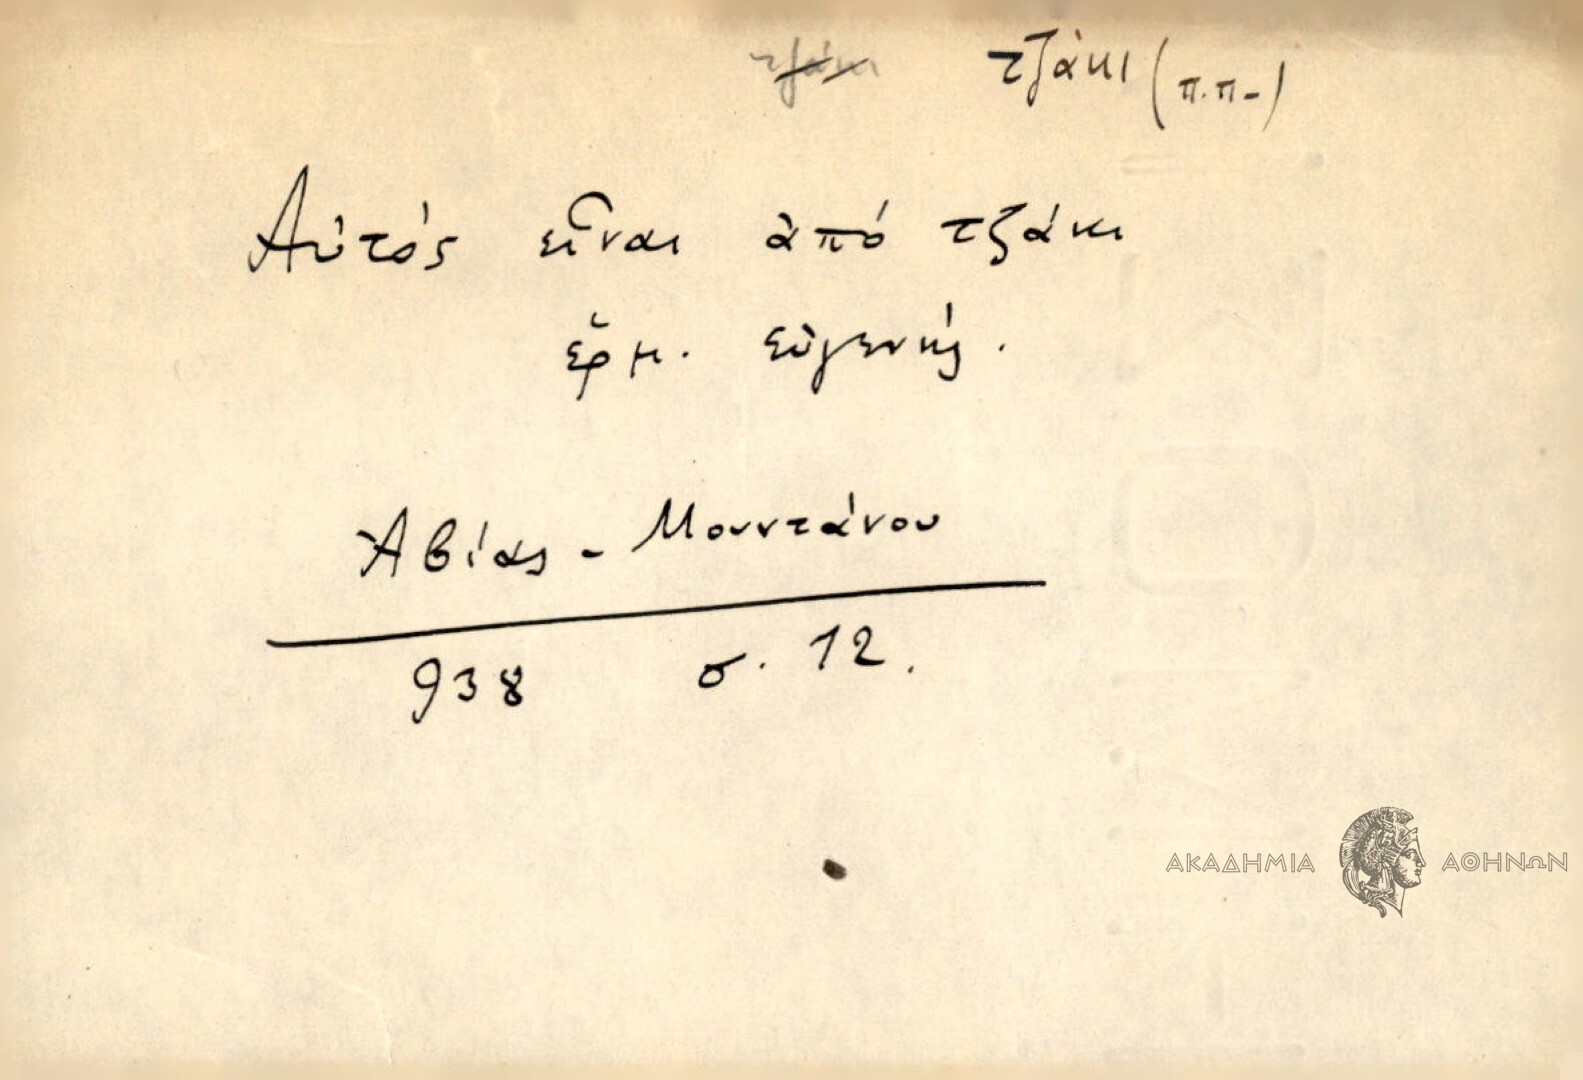 τζάκι τζάκι (π.π-)
Αὐτός εἶναι ἀπό τζάκι
ἑρμ. εὐγενής.
Ἀβίας - Μουντάνου
938 σ. 12.
ΑΚΑΔΗΜΙΑ ΑΘΗΝΩΝ